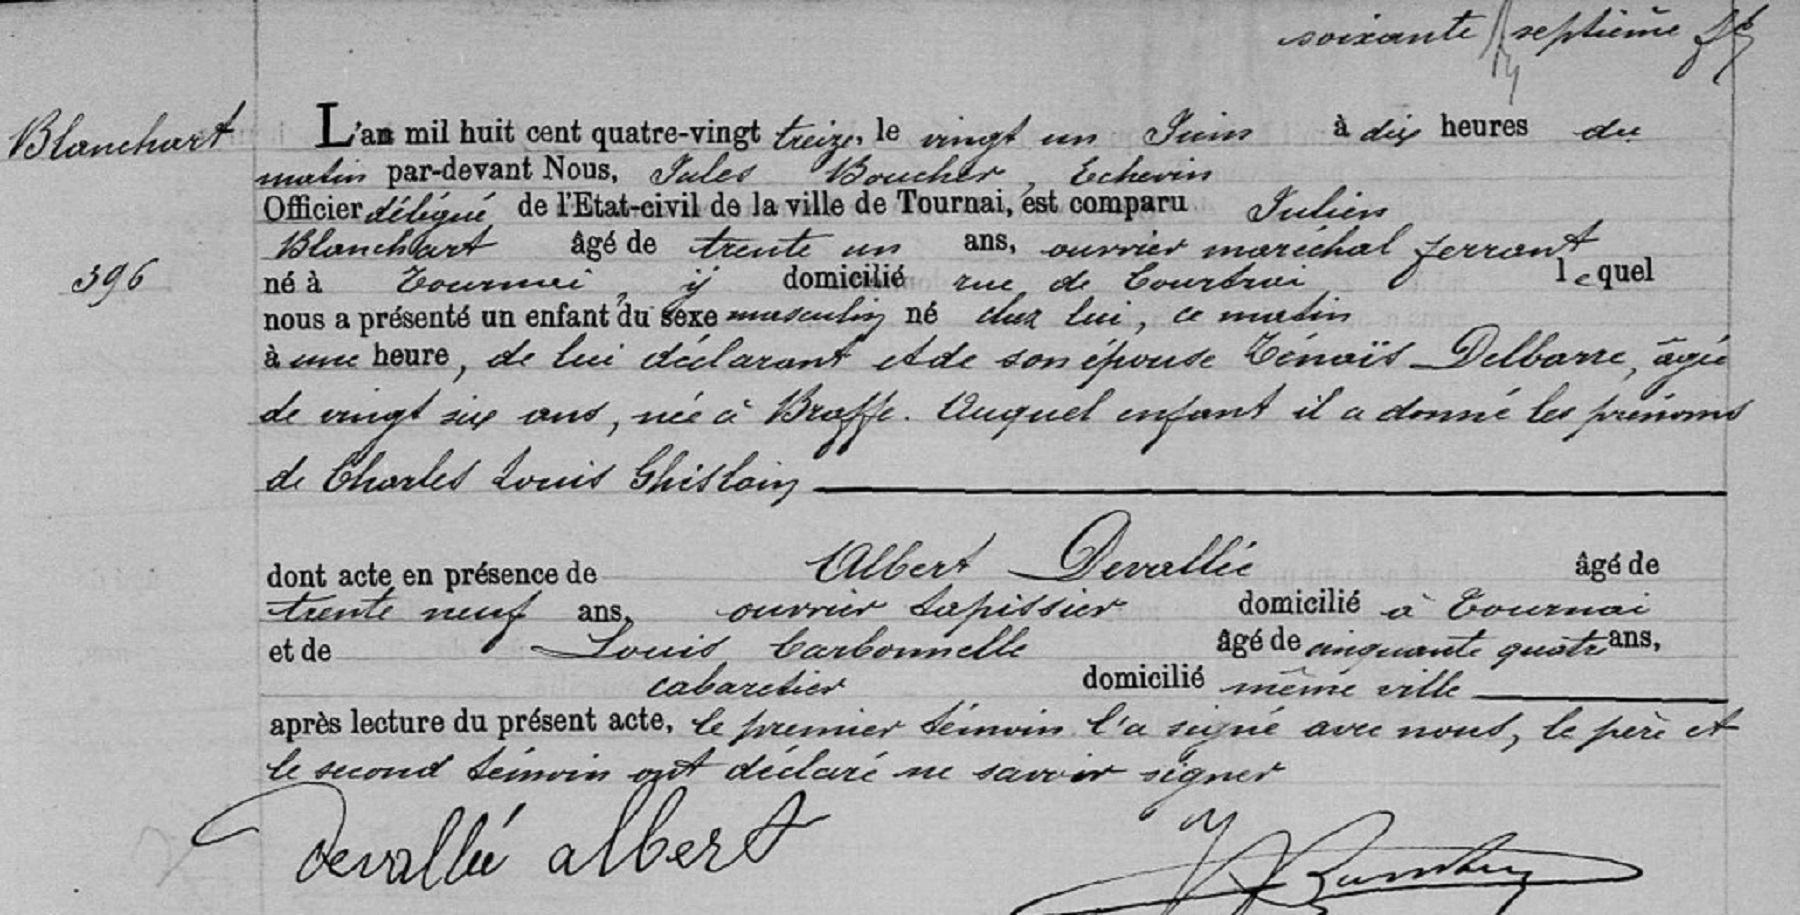 soixante septième ft
Blanchart
L'an mil huit cent quatre-vingt treize, le vingt un Juin à dix heures du
matin par-devant Nous, Jules Boucher, Echevin
Officier délégué de l'Etat-civil de la ville de Tournai, est comparu Julien
Blanchart âgé de trente un ans, ouvrier maréchal ferrant
396
né à Tournai, y domicilié rue de Courtrai lequel
nous a présenté un enfant du sexe masculin né chez lui, ce matin
à une heure, de lui déclarant et de son épouse Zénaïs Delbarre, âgée
de vingt six ans, née à Braffe. Auquel enfant il a donné les prénoms
de Charles Louis Ghislain
dont acte en présence de Albert Devallée âgé de
trente neuf ans, ouvrier tapissier domicilié à Tournai
et de Louis Carbonnelle âgé de cinquante quatre ans,
cabaretier domicilié même ville
après lecture du présent acte, le premier témoin l'a signé avec nous, le père et
le second témoin ont déclaré ne savoir signer
Devallée albert